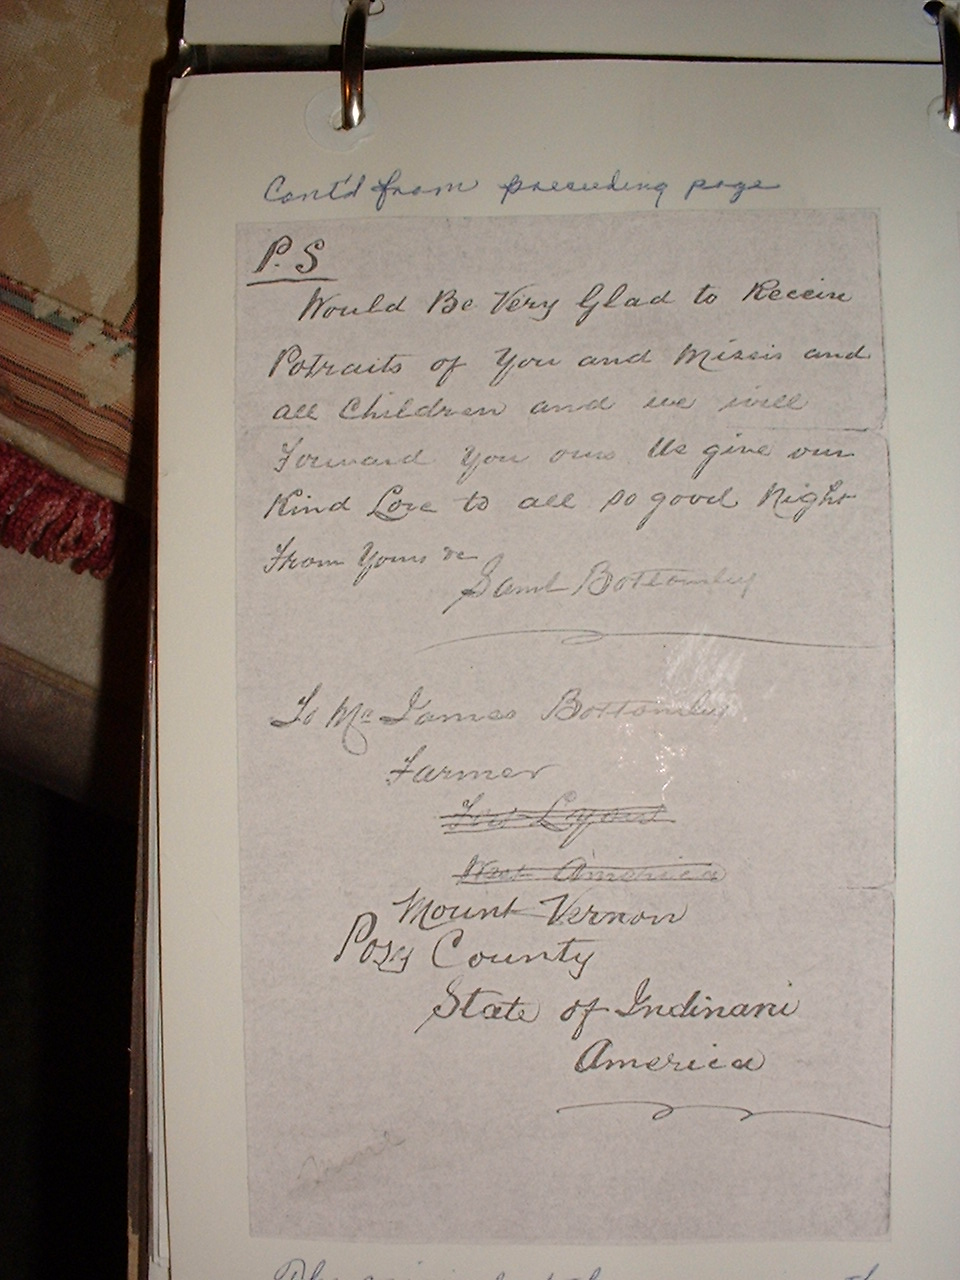 Cont'd from preceeding page
P.S
Would Be Very Glad to Receive
Potraits of You and Missis and
all Children and we will
Forward You ours Us give our
Kind Love to all so good Night
From Yours &c
Saml Bottomley
To Mr James Bottomley
Farmer
Lyons
West America
Mount Vernon
Posy County
State of Indinani
America